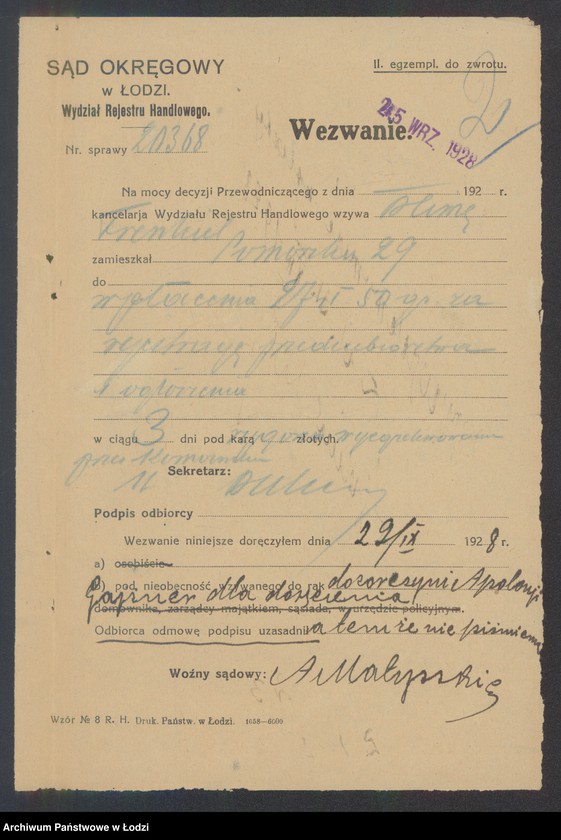 SĄD OKRĘGOWY
w ŁODZI.
Wydział Rejestru Handlowego.
II. egzempl. do zwrotu.
2
Wezwanie.
25 WRZ. 1928
Nr. sprawy 20368
Na mocy decyzji Przewodniczącego z dnia 192 r.
kancelarja Wydziału Rejestru Handlowego wzywa
Frenkiel
zamieszkał Pomorska 29
do
wpłacenia zł 50 gr. za
rejestrację przedsiębiorstwa
i ogłoszenia
w ciągu 3 dni pod karą złotych. rygorem wyegzekwowania
przez Komornika
Sekretarz:
Podpis odbiorcy
Wezwanie niniejsze doręczyłem dnia 29/IX 1928 r.
a) osobiście
b) pod nieobecność wzywanego do rąk dozorczyni Apolonji
Gajzner dla doręczenia
domownika, zarządcy majątkiem, sąsiada, w urzędzie policyjnym.
Odbiorca odmowę podpisu uzasadnił a tem że nie piśmienna
Woźny sądowy: AMałysski
Wzór № 8 R. H. Druk. Państw. w Łodzi. 1668—6000
Archiwum Państwowe w Łodzi